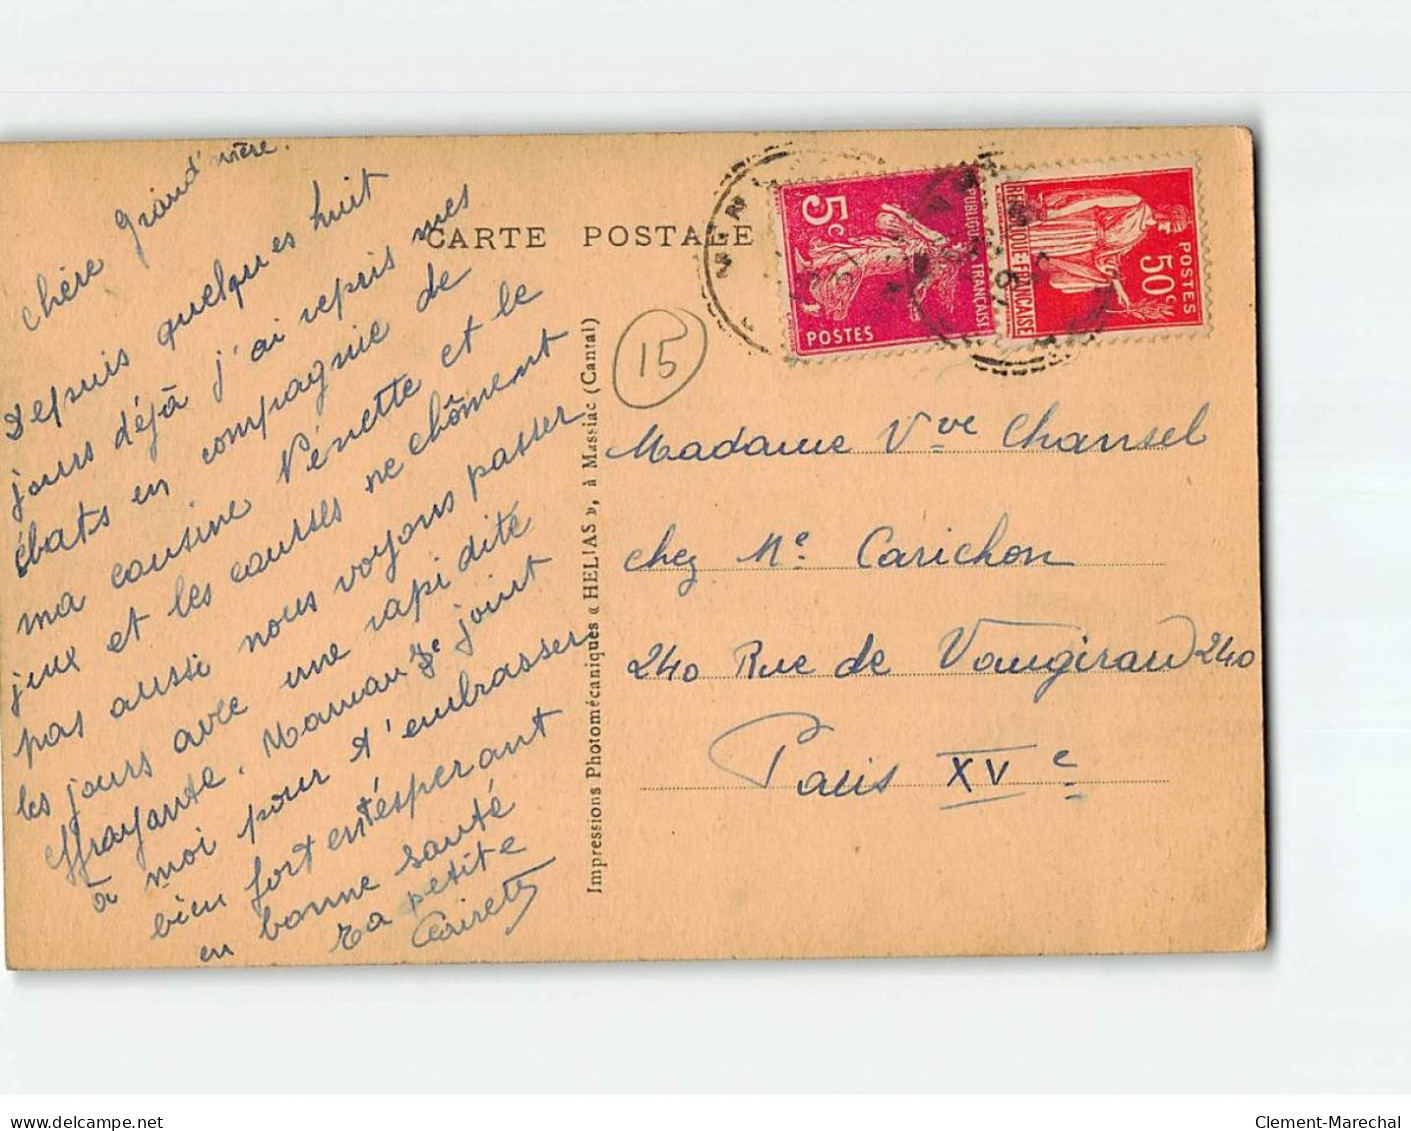 Chère Grand'mère.
Depuis quelques huit
jours déjà j'ai repris mes
ébats en compagnie de
ma cousine Pénette et le
jeux et les courses ne chôment
pas aussi nous voyons passer
les jours avec une rapidité
effrayante. Maman se joint
à moi pour t'embrasser
bien fort en t'éspérant
en bonne santé
Ta petite
CARTE POSTALE
15
Impressions Photomécaniques « HELIAS », à Massiac (Cantal)
5c
POSTES
RÉPUBLIQUE FRANÇAISE
POSTES
50c
RÉPUBLIQUE FRANÇAISE
Madame Vve Chansel
chez Me Carichon
240 Rue de Vaugirard 240
Paris XVe
Clement-Marechal
delcampe.net